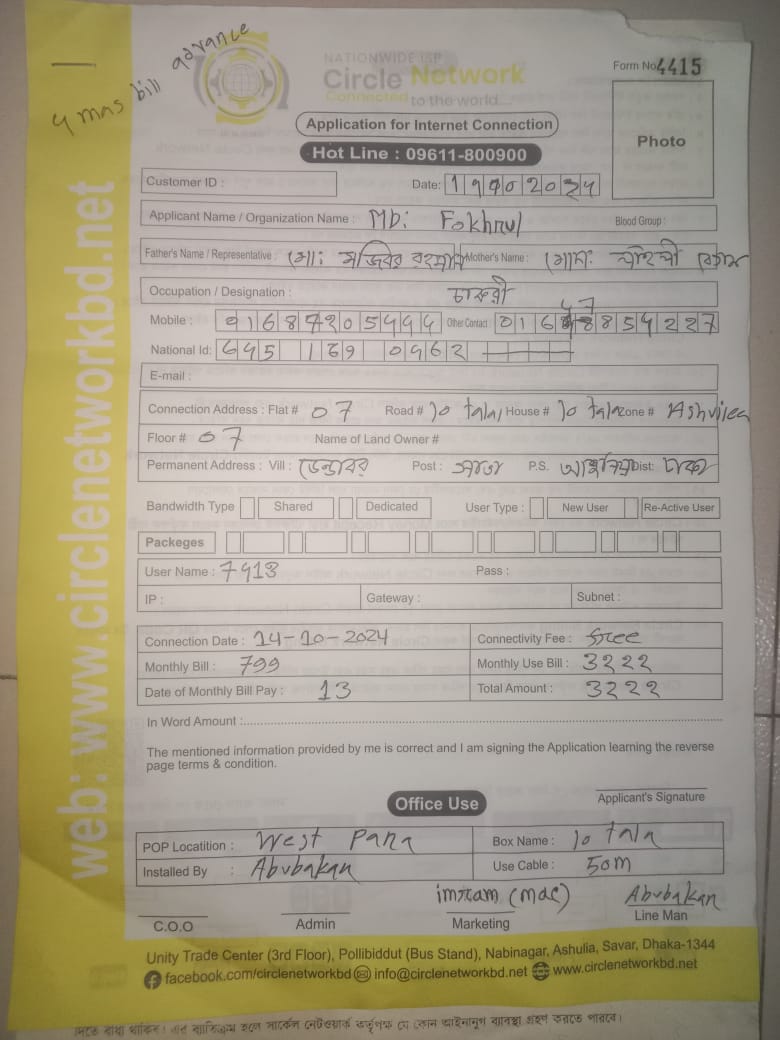 4 mas bill advance
NATIONWIDE ISP
Circle Network
Connected to the world...
Form No 4415
Application for Internet Connection
Hot Line : 09611-800900
Photo
Customer ID :
Date:
Applicant Name / Organization Name : MD: Fokhrul Blood Group :
Father's Name / Representative : মোঃ মজিবর রহমান Mother's Name :
Occupation / Designation : চাকরী
Mobile : Other Contact :
National Id: 645 169 0462
E-mail :
Connection Address : Flat # 07 Road # 10 tala, House # 10 tala Zone #
Floor # 07 Name of Land Owner #
Permanent Address : Vill : ডেন্ডাবর Post : P.S. Dist: ঢাকা
Bandwidth Type Shared Dedicated User Type : New User Re-Active User
Packeges
User Name : 7413 Pass :
IP : Gateway : Subnet :
Connection Date : 14-10-2024 Connectivity Fee : free
Monthly Bill : 799 Monthly Use Bill : 3222
Date of Monthly Bill Pay : 13 Total Amount : 3222
In Word Amount :
The mentioned information provided by me is correct and I am signing the Application learning the reverse
page terms & condition.
Applicant's Signature
Office Use
POP Locatition : West Para Box Name : 10 tala
Installed By : Abubakar Use Cable : 50m
imram (mac) Abubakar
C.O.O Admin Marketing Line Man
Unity Trade Center (3rd Floor), Pollibiddut (Bus Stand), Nabinagar, Ashulia, Savar, Dhaka-1344
facebook.com/circlenetworkbd info@circlenetworkbd.net www.circlenetworkbd.net
web: www.circlenetworkbd.net
দিতে বাধ্য থাকিব। এর ব্যতিক্রম হলে সার্কেল নেটওয়ার্ক কর্তৃপক্ষ যে কোন আইনানুগ ব্যবস্থা গ্রহণ করতে পারবে।